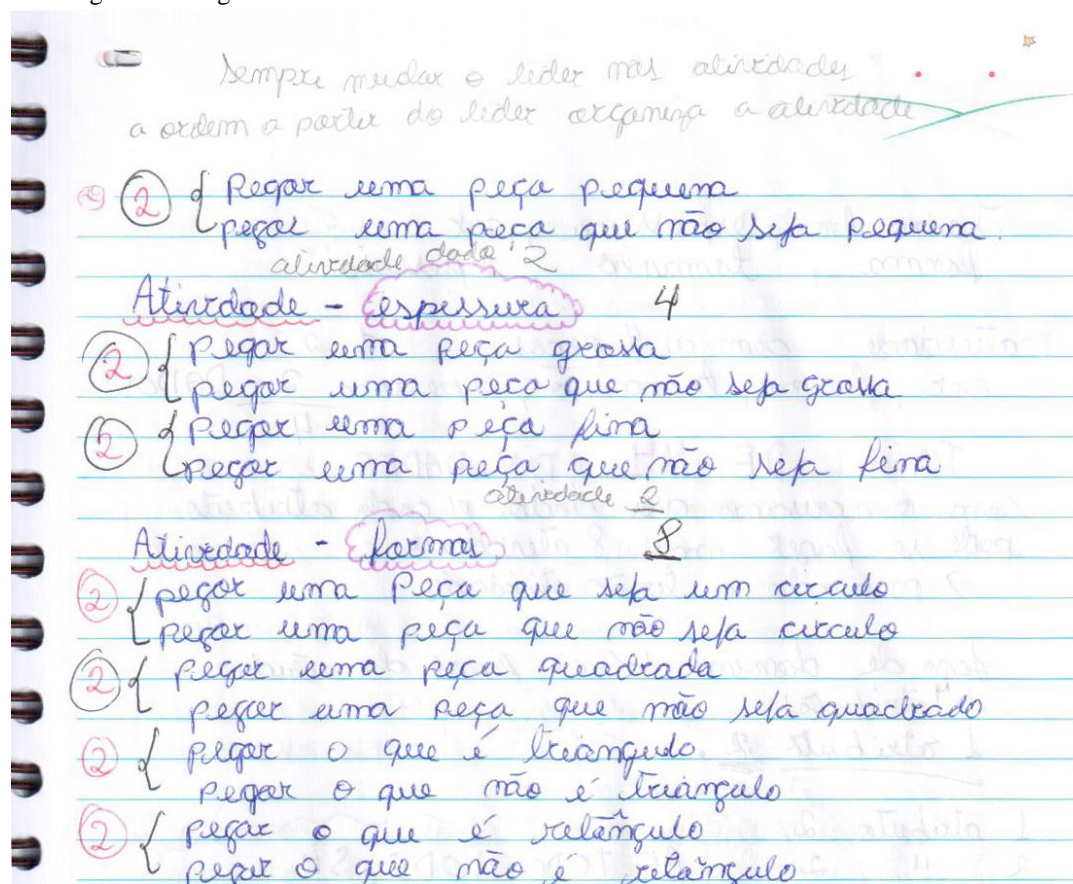 Sempre mudar o lider nas atividades
a ordem a partir do lider organiza a atividade
2 { Pegar uma peça pequena
pegar uma peça que não seja pequena.
atividade dada 2
Atividade - espessura 4
2 { pegar uma peça grossa
pegar uma peça que não seja grossa
2 { pegar uma peça fina
pegar uma peça que não seja fina
atividade 2
Atividade - formas 8
2 { pegar uma peça que seja um circulo
pegar uma peça que não seja circulo
2 { pegar uma peça quadrada
pegar uma peça que não seja quadrado
2 { pegar o que é triângulo
pegar o que não é triângulo
2 { pegar o que é retângulo
pegar o que não é retângulo